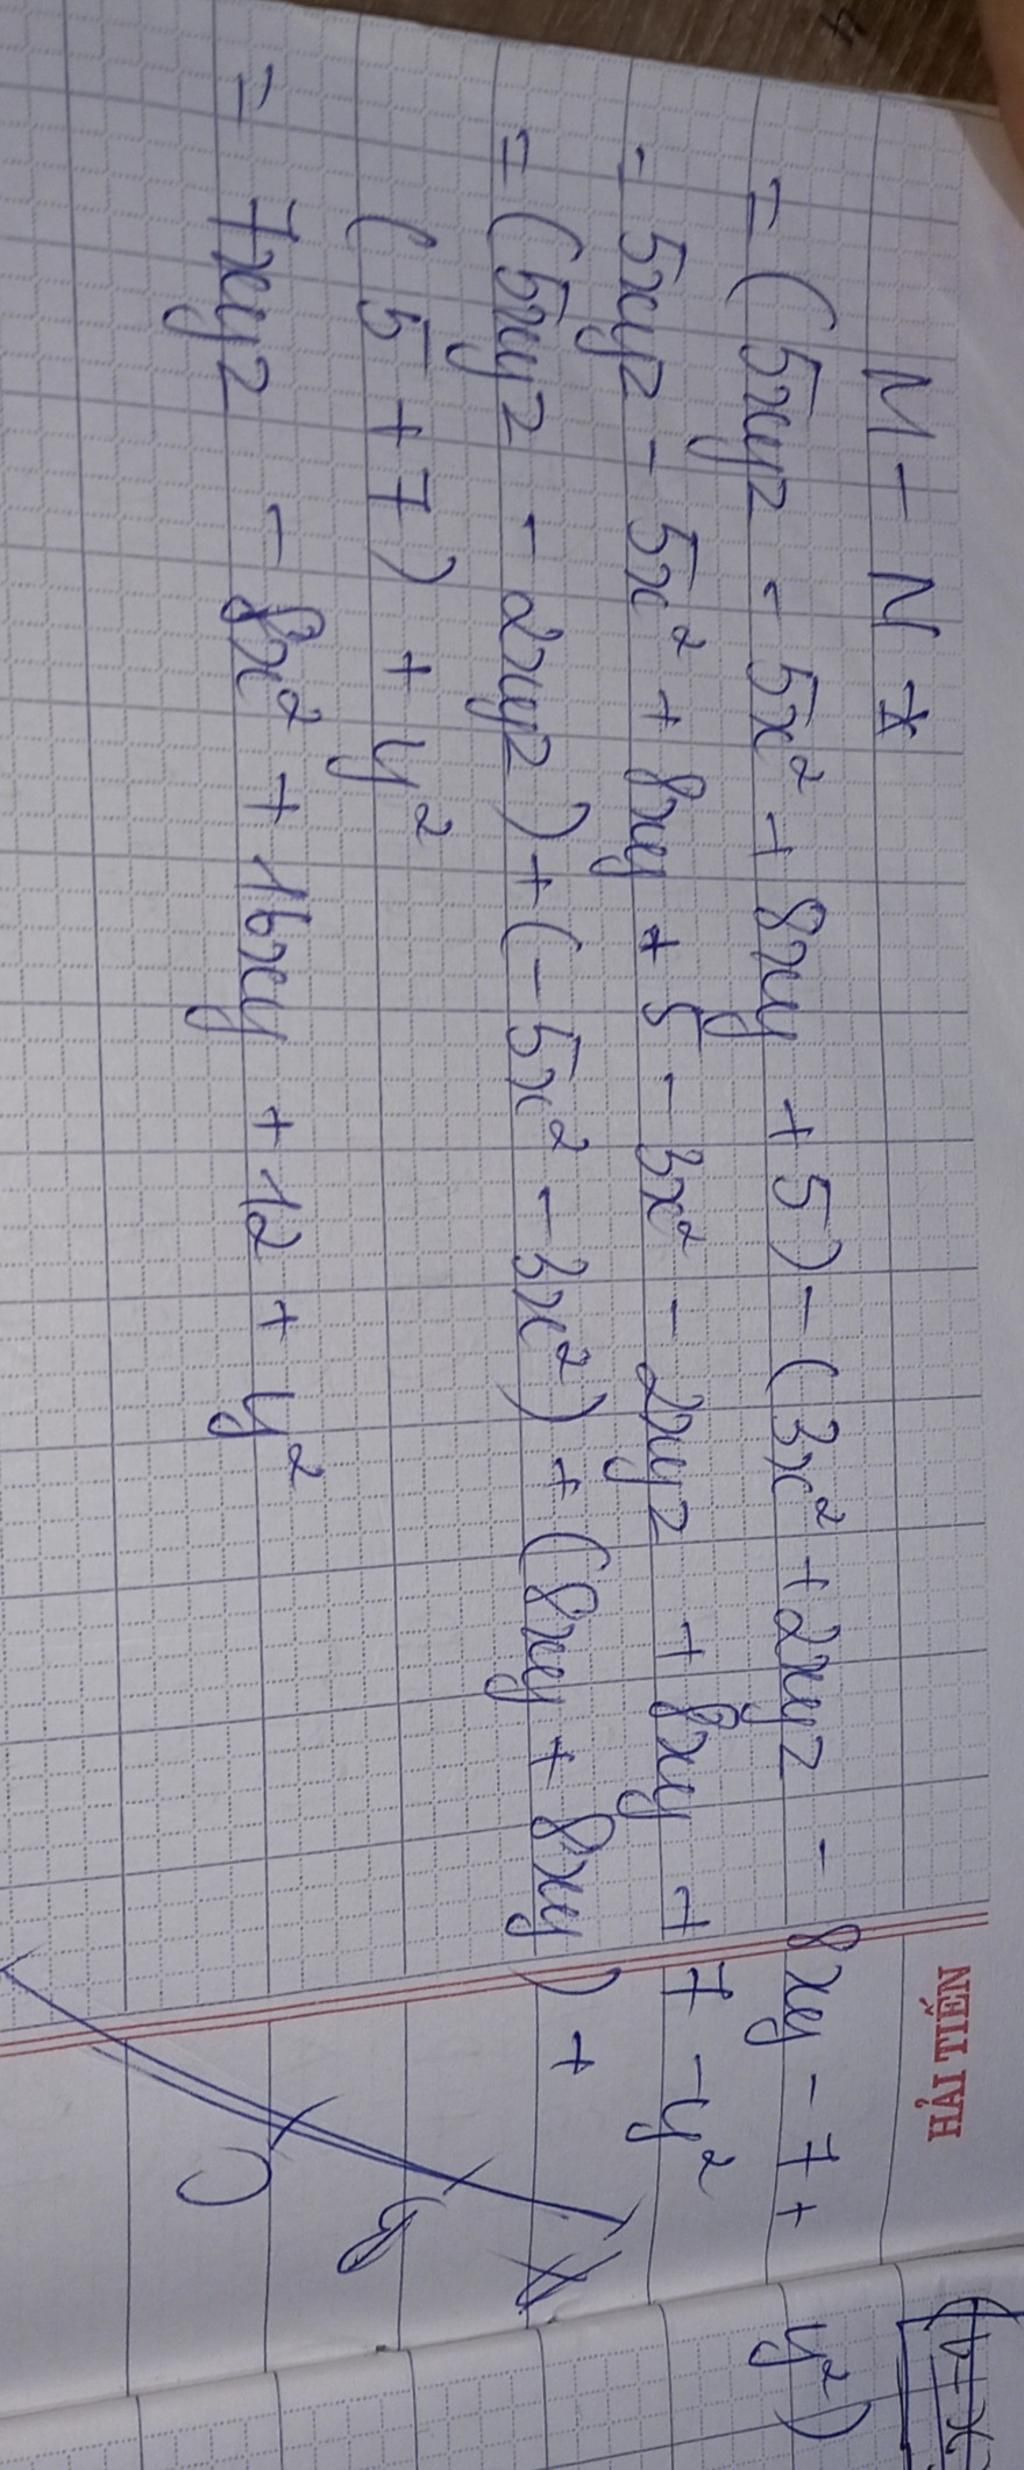 HẢI TIẾN
M - N *
= (5xyz - 5x² + 8xy + 5) - (3x² + 2xyz - 8xy - 7 + y²)
= 5xyz - 5x² + 8xy + 5 - 3x² - 2xyz + 8xy + 7 - y²
= (5xyz - 2xyz) + (-5x² - 3x²) + (8xy + 8xy) +
(5 + 7) + y²
= 7xyz - 8x² + 16xy + 12 + y²
A
B
C